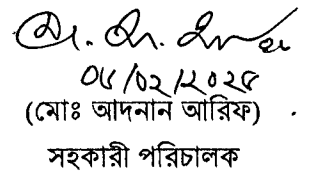 ০৫/০২/২০২৫
(মোঃ আদনান আরিফ)
সহকারী পরিচালক